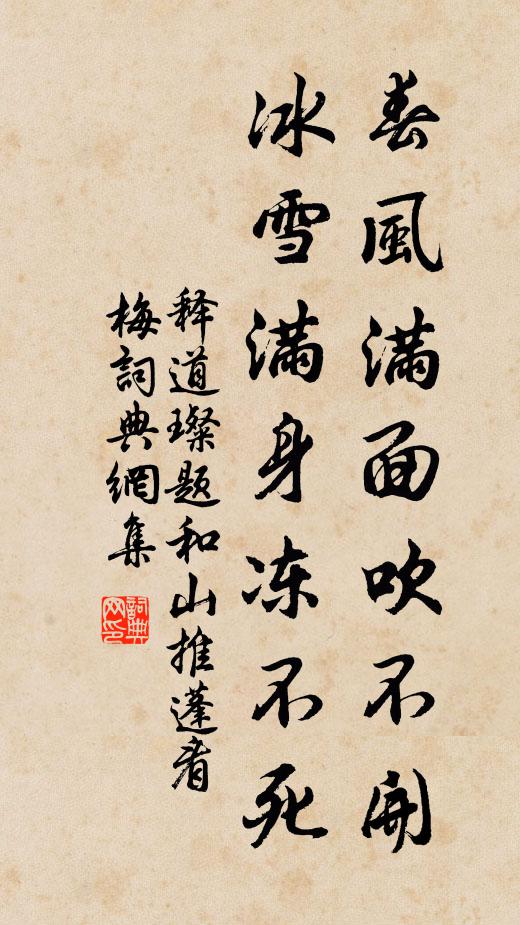 春風滿面吹不開
冰雪滿身冻不死
释道璨题和山推蓬看
梅詞典網集
詞典网印